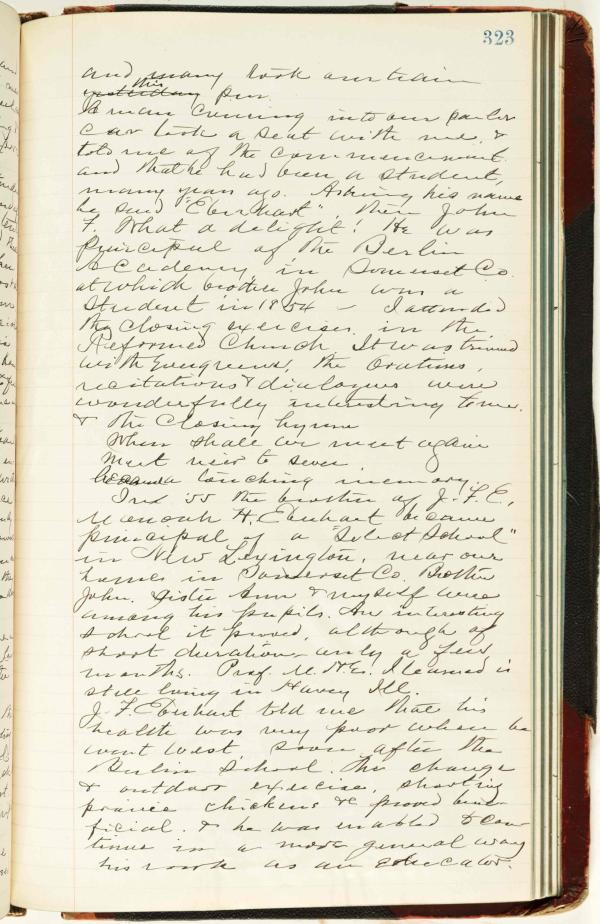 323
and many took our train
this
yesterday pm
A man coming into our parlor
car took a seat with me, &
told me of the commencement
and that he had been a student,
many years ago. Asking his name
he said "Eberhart", then John
F. What a delight! He was
principal of the Berlin
Academy, in Somerset Co.
at which brother John was a
student in 1854 — I attended
the closing exercises in the
Reformed Church. It was trimmed
with Evergreens, the Orations,
recitations & dialogues were
wonderfully interesting to me.
& the closing hymn
When shall we meet again
Meet never to sever
became a touching memory.
In 55 the brother of J. F. E.,
H. Eberhart became
principal of a "Select School"
in New Lexington, near our
homes in Somerset Co. Brother
John, Sister Ann & myself were
among his pupils. An interesting
school it proved, although of
short duration, only a few
months. Prof. M. H. E. I learned is
still living in Harvey Ill.
J. F. Eberhart told me that his
health was very poor when he
went West soon after the
Berlin School. The change
& outdoor exercise, shooting
prairie chickens &c proved bene-
ficial. & he was enabled to con-
tinue in a more general way
his work as an educator.